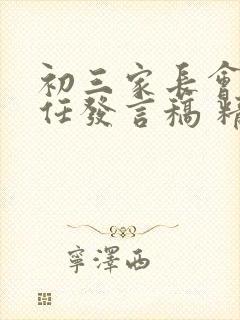 初三家長會
任發言稿 精
寧澤西